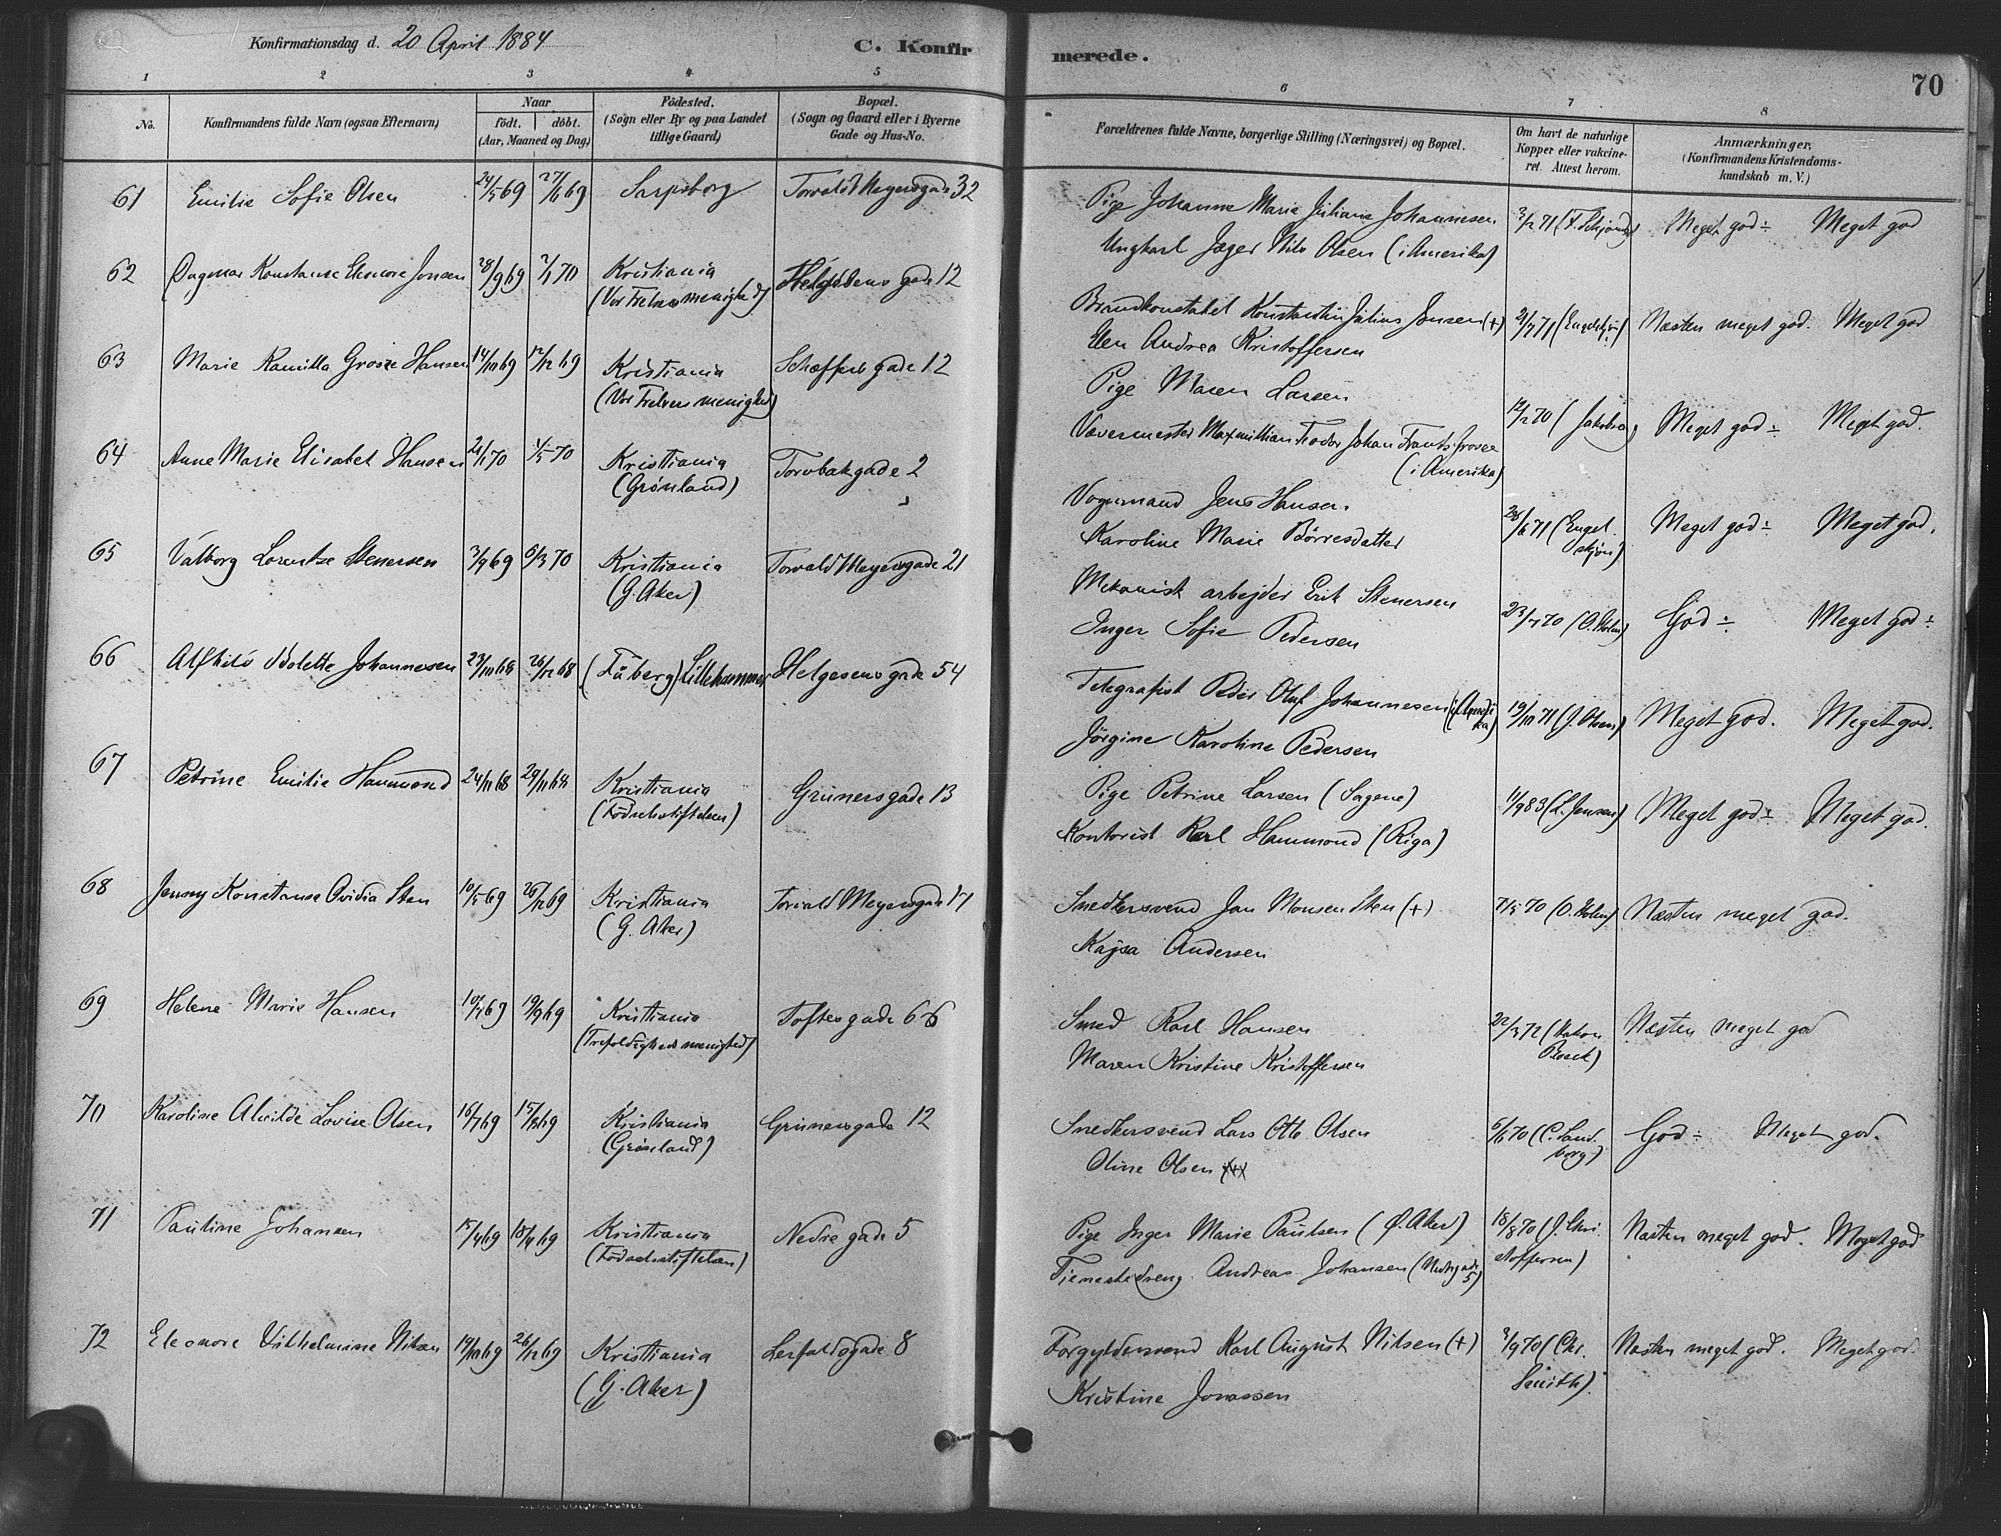 Konfirmationsdag d. 20 April 1884
C. Konfir
merede.
70
1 2 3 4 5 6 7 8
No.
Konfirmandens fulde Navn (ogsaa Efternavn)
Naar
født. døbt.
(Aar, Maaned og Dag)
Fødested.
(Sogn eller By og paa Landet
tillige Gaard)
Bopæl.
(Sogn og Gaard eller i Byerne
Gade og Hus-No.
Forældrenes fulde Navne, borgerlige Stilling (Næringsvei) og Bopæl.
Om havt de naturlige
Kopper eller vakcine-
ret. Attest herom.
Anmærkninger.
(Konfirmandens Kristendoms-
kundskab m. V.)
61 Emilie Sofie Olsen 24/5 69 27/6 69 Sarpsborg Torvald Meyersgade 32
Pige Johanne Marie Juliane Johannesen
Ungkarl Jæger Nils Olsen (i Amerika)
71 Meget god ÷ Meget god
62 Dagmar Konstanse Eleonore Jonsen 28/9 69 2/1 70 Kristiania
(Vor Frelsers menighed) Helgesens gade 12
Brandkonstabel Konstantin Julius Jonsen (+)
Elen Andrea Kristoffersen
2/7 71 (Engelskjøn) Næsten meget god. Meget god
63 Marie Kamilla Grosse Hansen 14/10 69 12/12 69 Kristiania
(Vor Frelsers menighed) Schæffersgade 12
Pige Maren Larsen
Vævermester Maxmillian Teodor Johan Frants Grosse
(i Amerika)
12/2 70 (Jakobsen) Meget god ÷ Meget god.
64 Anne Marie Elisabet Hansen 24/1 70 1/5 70 Kristiania
(Grønland) Torvbakgade 2
Vognmand Jens Hansen.
Karoline Marie Børresdatter
28/6 71 (Engel
skjøn) Meget god ÷ Meget god.
65 Valborg Lorentse Stenersen 3/9 69 6/3 70 Kristiania
(G. Aker) Torvald Meyersgade 21
Mekanisk arbejder Erik Stenersen
Inger Sofie Pedersen
23/7 70 (O. Holm) God ÷ Meget god ÷
66 Alfhild Bolette Johannesen 23/10 68 26/12 68 (Fåberg) Lillehammer Helgesens gade 54
Telegrafist Peder Oluf Johannesen (i Ameri
ka)
Jørgine Karoline Pedersen
19/10 71 (J. Olsen) Meget god. Meget god.
67 Petrine Emilie Hammond 24/11 68 29/11 68 Kristiania
(Fødselsstiftelsen) Grünersgade 13
Pige Petrine Larsen (Sagene)
Kontorist Karl Hammond (Riga)
11/9 83 (L. Jensen) Meget god ÷ Meget god.
68 Jenny Konstanse Ovidia Sten 10/5 69 26/12 69 Kristiania
(G. Aker) Torvald Meyersgade 17
Snedkersvend Jan Monsen Sten (+)
Kajsa Andersen
7/5 70 (O. Holm) Næsten meget god.
69 Helene Marie Hansen 10/7 69 19/9 69 Kristiania
(Trefoldigheds menighed) Toftes gade 66
Smed Karl Hansen
Maren Kristine Kristoffersen
22/3 72 (Hakon
Boeck) Næsten meget god
70 Karoline Alvilde Lovise Olsen 16/7 69 15/8 69 Kristiania
(Grønland) Grünersgade 12
Snedkersvend Lars Otto Olsen
Oline Olsen
5/6 70 (C. Sand
berg) God ÷ Meget god.
71 Pauline Johansen 15/4 69 18/4 69 Kristiania
(Fødselsstiftelsen) Nedre gade 5
Pige Inger Marie Paulsen (Ø. Aker)
Tjenestedreng Andreas Johansen (Nedregade
5)
18/8 70 (J. Kri
stoffersen) Næsten meget god. Meget god
72 Eleonore Vilhelmine Nilsen 19/10 69 26/12 69 Kristiania
(G. Aker) Lerfaldsgade 8
Forgyldersvend Karl August Nilsen (+)
Kristine Jonassen
3/9 70 (Chr.
Smith) Næsten meget god. Meget god.